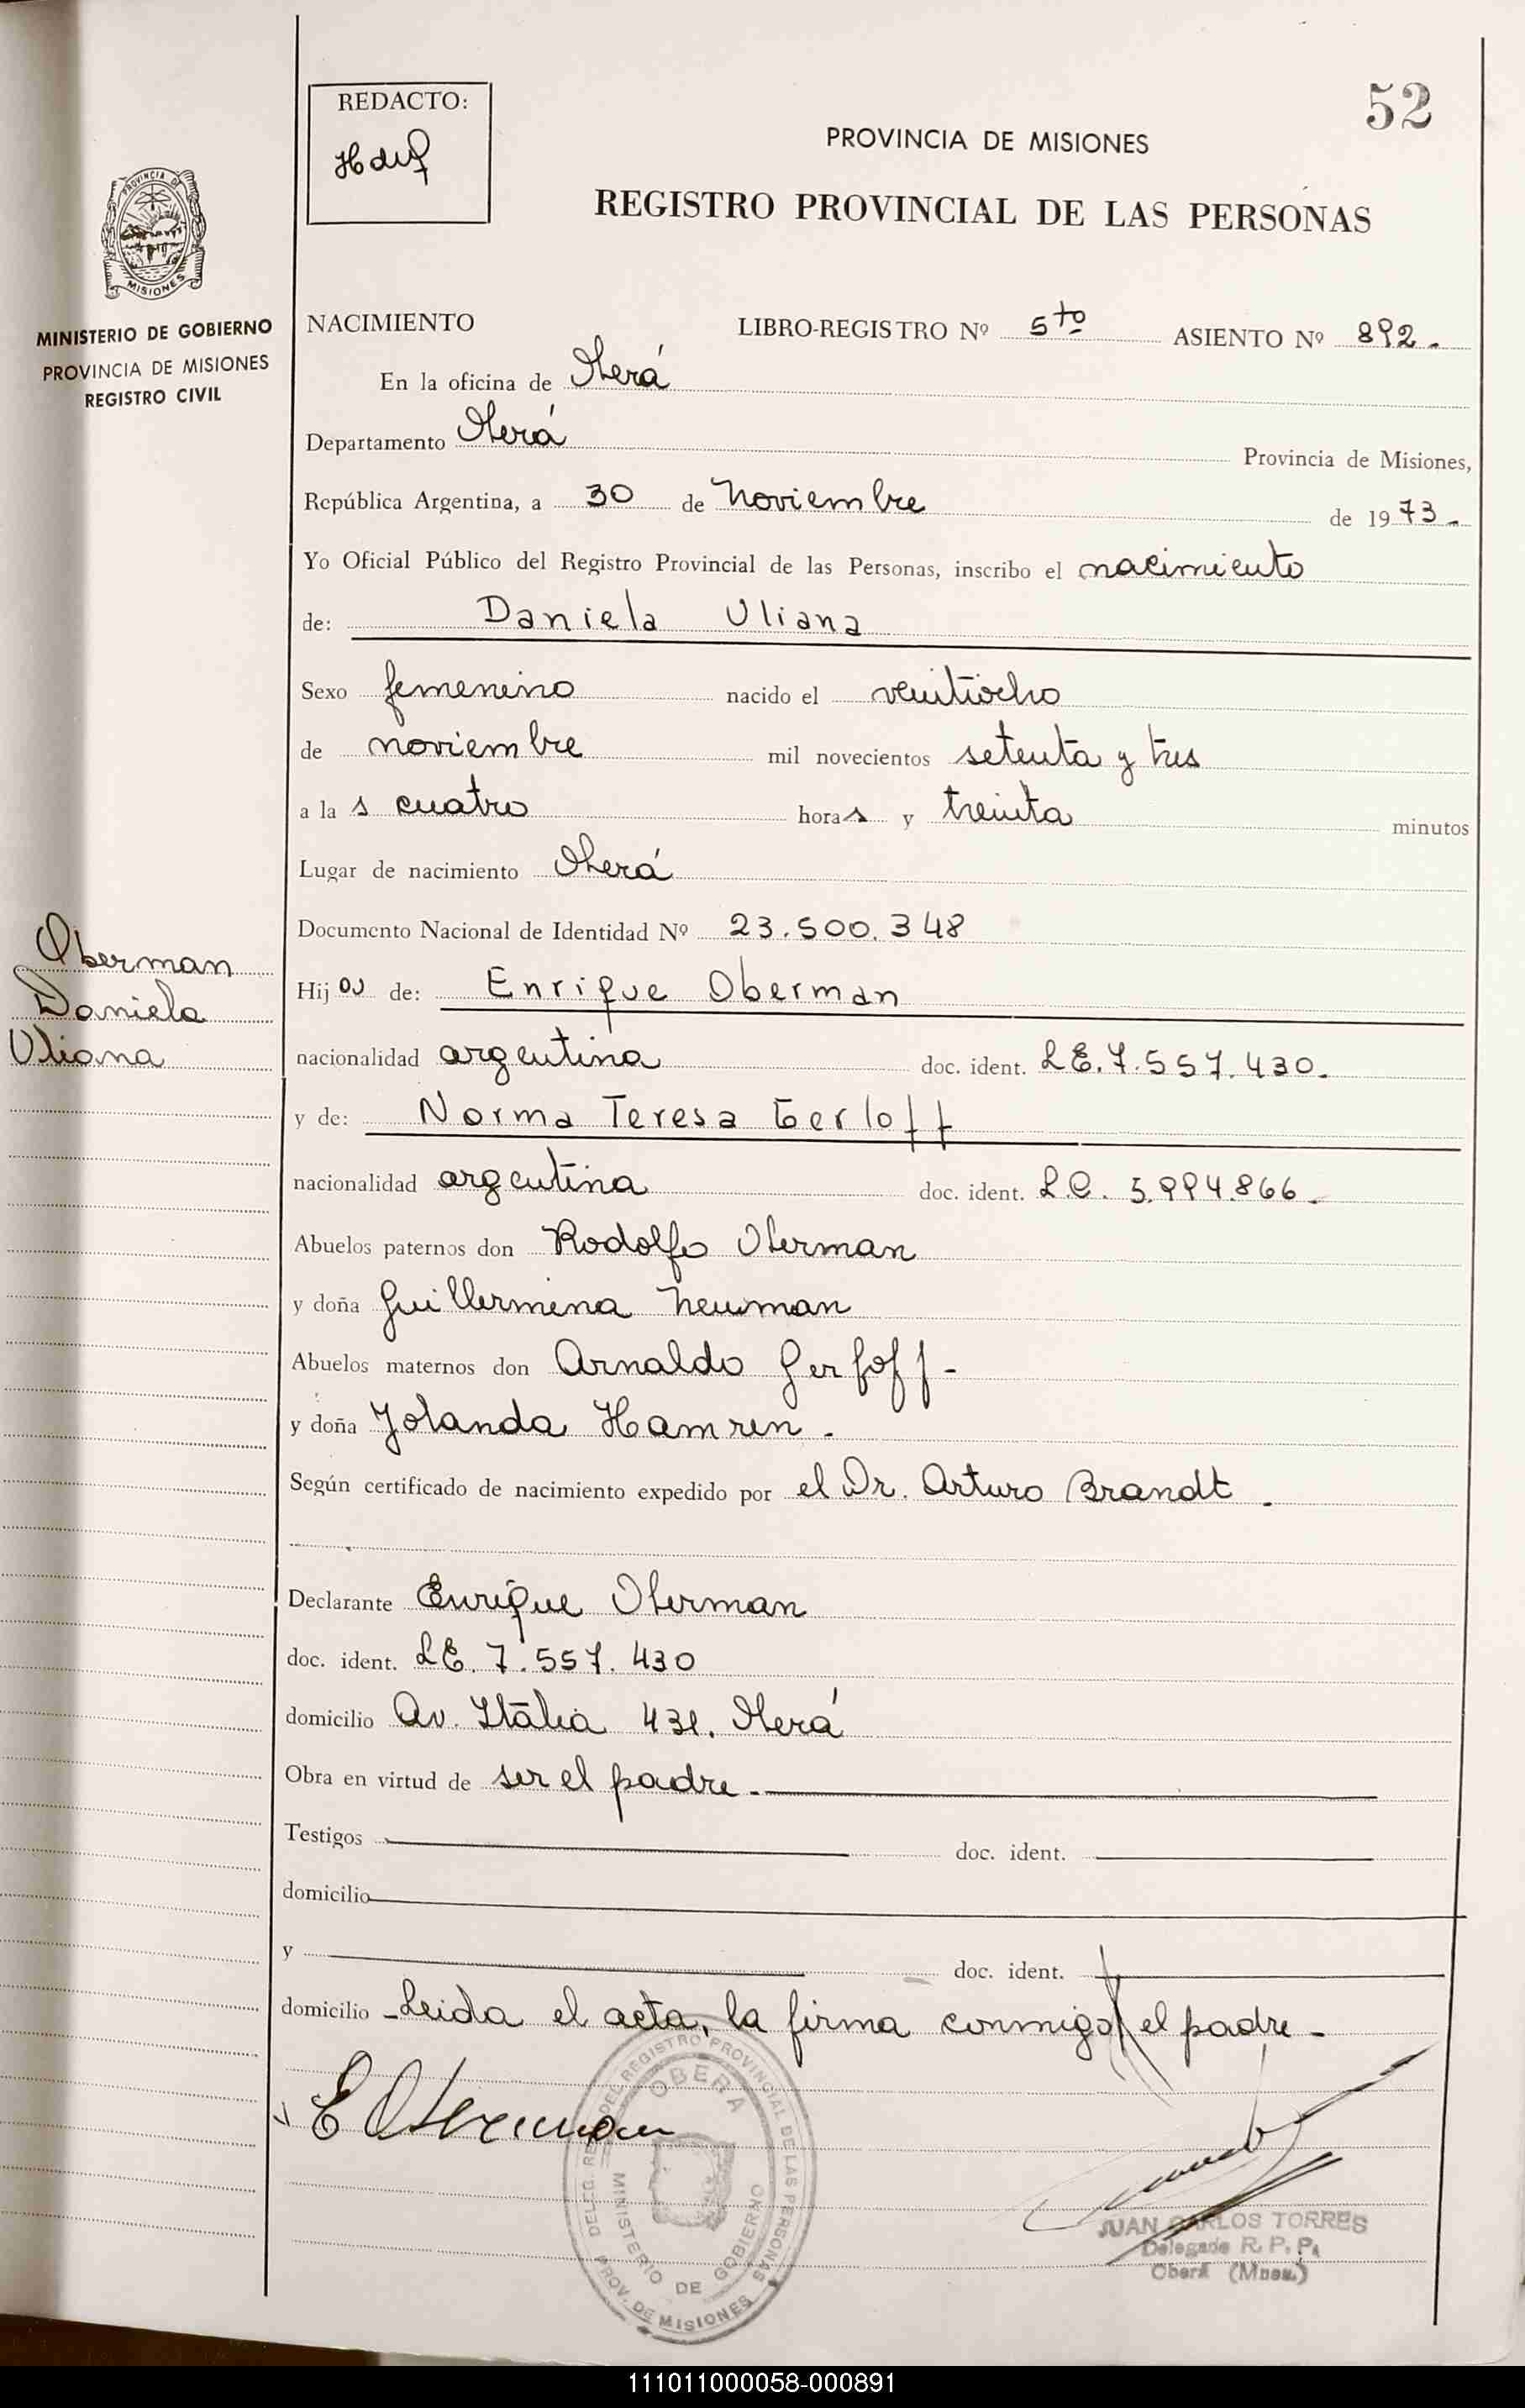 52
REDACTO:
PROVINCIA DE MISIONES
REGISTRO PROVINCIAL DE LAS PERSONAS
PROVINCIA DE
MISIONES
MINISTERIO DE GOBIERNO
PROVINCIA DE MISIONES
REGISTRO CIVIL
NACIMIENTO LIBRO-REGISTRO Nº 5to ASIENTO Nº 892.
En la oficina de Oberá
Departamento Oberá Provincia de Misiones,
República Argentina, a 30 de Noviembre de 1973.
Yo Oficial Público del Registro Provincial de las Personas, inscribo el nacimiento
de: Daniela Uliana
Sexo femenino nacido el veintiocho
de noviembre mil novecientos setenta y tres
a las cuatro horas y treinta minutos
Lugar de nacimiento Oberá
Documento Nacional de Identidad Nº 23.500.348
Oberman
Daniela
Uliana
Hij de: Enrique Oberman
nacionalidad argentina doc. ident. LE. 7.557.430.
y de: Norma Teresa Gerloff
nacionalidad argentina doc. ident. L.C. 5.994.866.
Abuelos paternos don Rodolfo Oberman
y doña Guillermina Neuman
Abuelos maternos don Arnaldo Gerloff -
y doña Yolanda Hamren.
Según certificado de nacimiento expedido por el Dr. Arturo Brandt.
Declarante Enrique Oberman
doc. ident. LE. 7.557.430
domicilio Av. Italia 431. Oberá
Obra en virtud de ser el padre.
Testigos doc. ident.
domicilio
y doc. ident.
domicilio - Leida el acta, la firma conmigo el padre -
E Oberman
DELEG. DEL REGISTRO PROVINCIAL DE LAS PERSONAS
OBERA
MINISTERIO DE GOBIERNO
PROV. DE MISIONES
JUAN CARLOS TORRES
Delegado R. P. P.
Oberá (Mnes.)
111011000058-000891